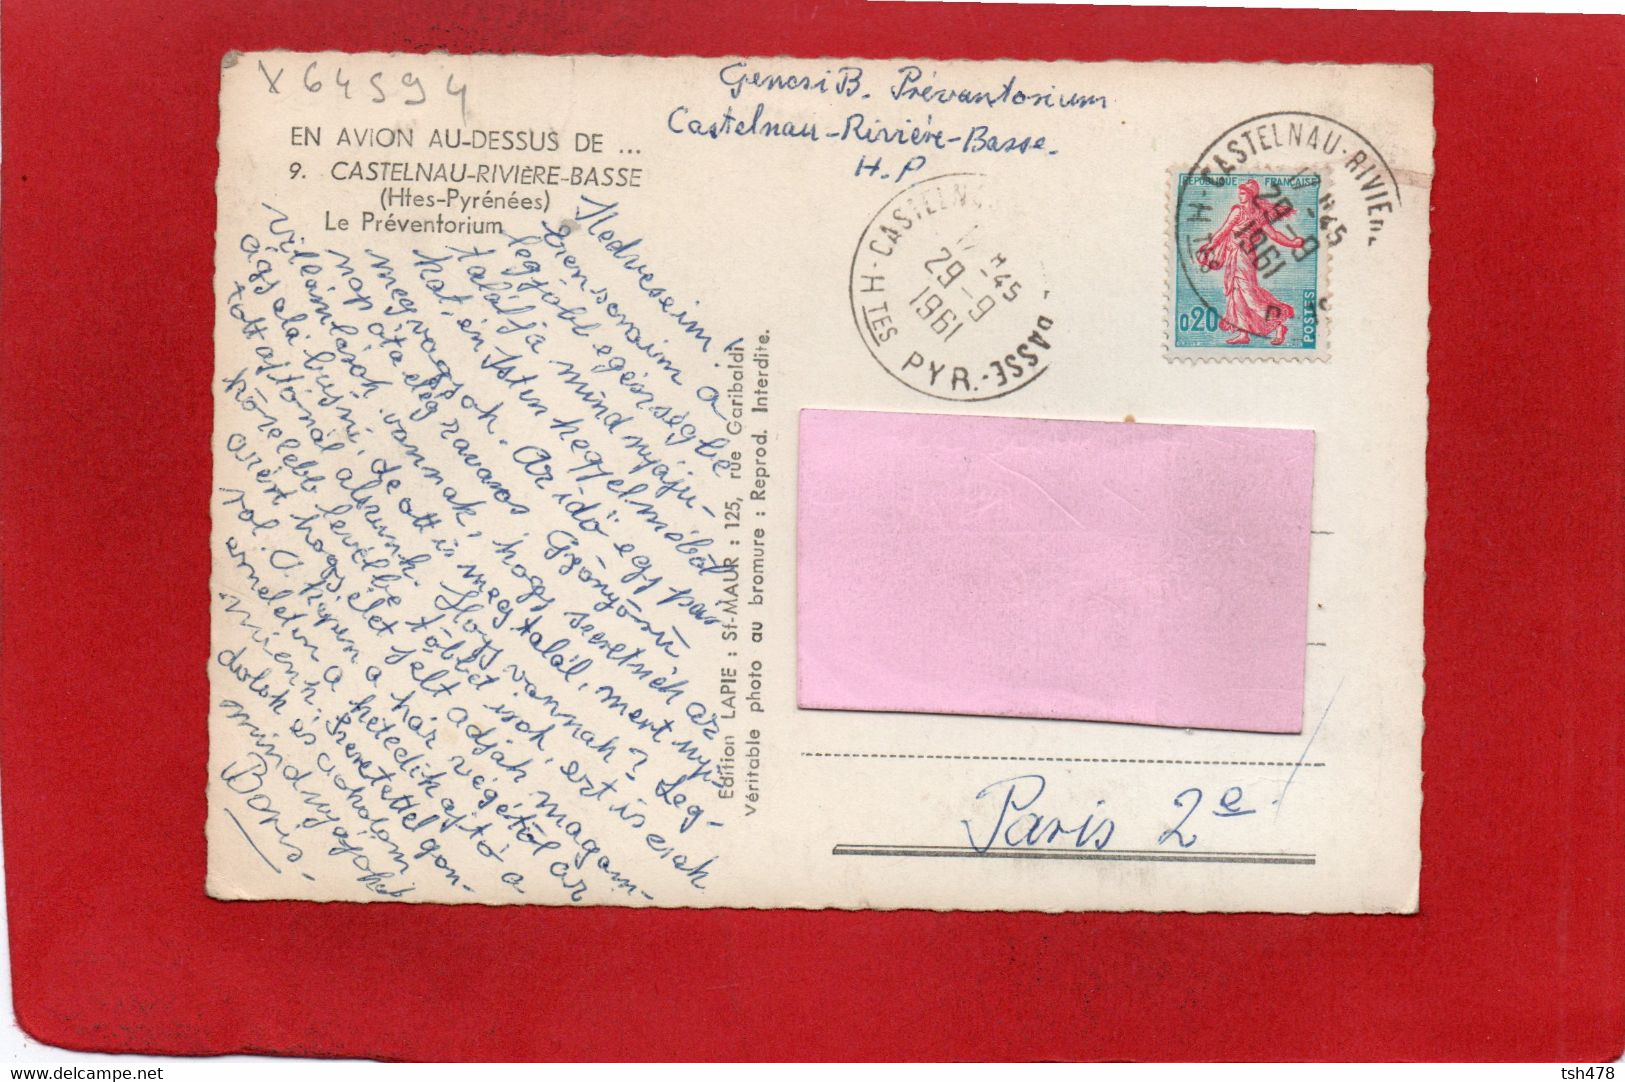 X 64594
EN AVION AU-DESSUS DE ...
9. CASTELNAU-RIVIÈRE-BASSE
(Htes-Pyrénées)
Le Préventorium
Genosi B. Prévantorium
Castelnau-Rivière-Basse.
H. P
Kedveseim!
Éen soraim a
legjobb egésségbe
találja mind nyáju-
kat, én Isten kegyelméből
megvagyok. Az idő egy pár
nap óta elég zavaros, Gyönyörű
villámlások vannak, hogy szeretnék az
ágy alá bújni, de ott is megtalál, mert nyi-
tott ajtónál alszunk. Hogy vannak? Leg-
közelebb levélbe többet irok, ezt is csak
azért hogy, élet jelt adják magam-
ról. A képen a ház végétől az
emeleten a hetedik ajtó a
mienk. Szeretettel gon-
dolok és csókolom
mindnyájokat
Boris-
Edition LAPIE : St-MAUR : 125, rue Garibaldi
Véritable photo au bromure : Reprod. Interdite.
H-CASTELNAU
17 H 45
29-9
1961
TES PYR.-BASSE
H-CASTELNAU-RIVIÈRE
17 H 45
29-9
1961
TES P
RÉPUBLIQUE FRANÇAISE
0,20
POSTES
Paris 2e
tsh478
www.delcampe.net